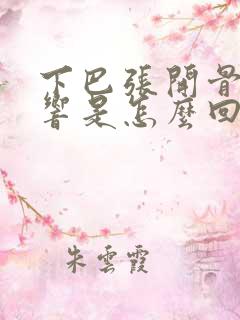 下巴張開骨
響是怎麼回
朱雲霞